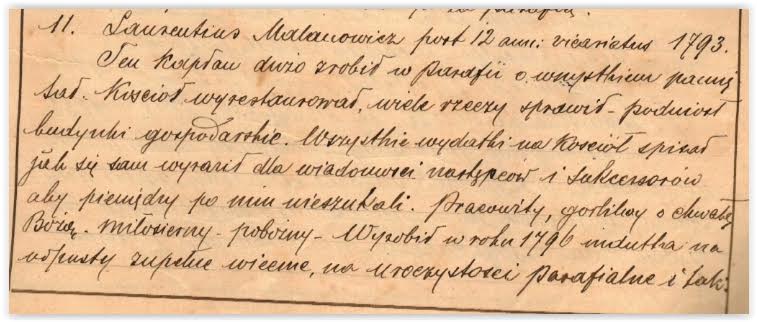 11. Laurentius Malanowicz post 12 ann: vicariatus 1793.
Ten Kapłan dużo zrobił w Parafii o wszystkiem pamię
tał. Kościoł wyrestaurował, wiele rzeczy sprawił - podniosł
budynki gospodarskie. Wszystkie wydatki na Kościół spisał
jak się sam wyraził dla wiadomości następców i sukcessorów
aby pieniędzy po nim nieszukali. Pracowity, gorliwy o chwałę
Bożą - miłosierny - pobożny - Wyrobił w roku 1796 indulta na
odpusty zupełne wieczne, na uroczystości Parafialne i tak: